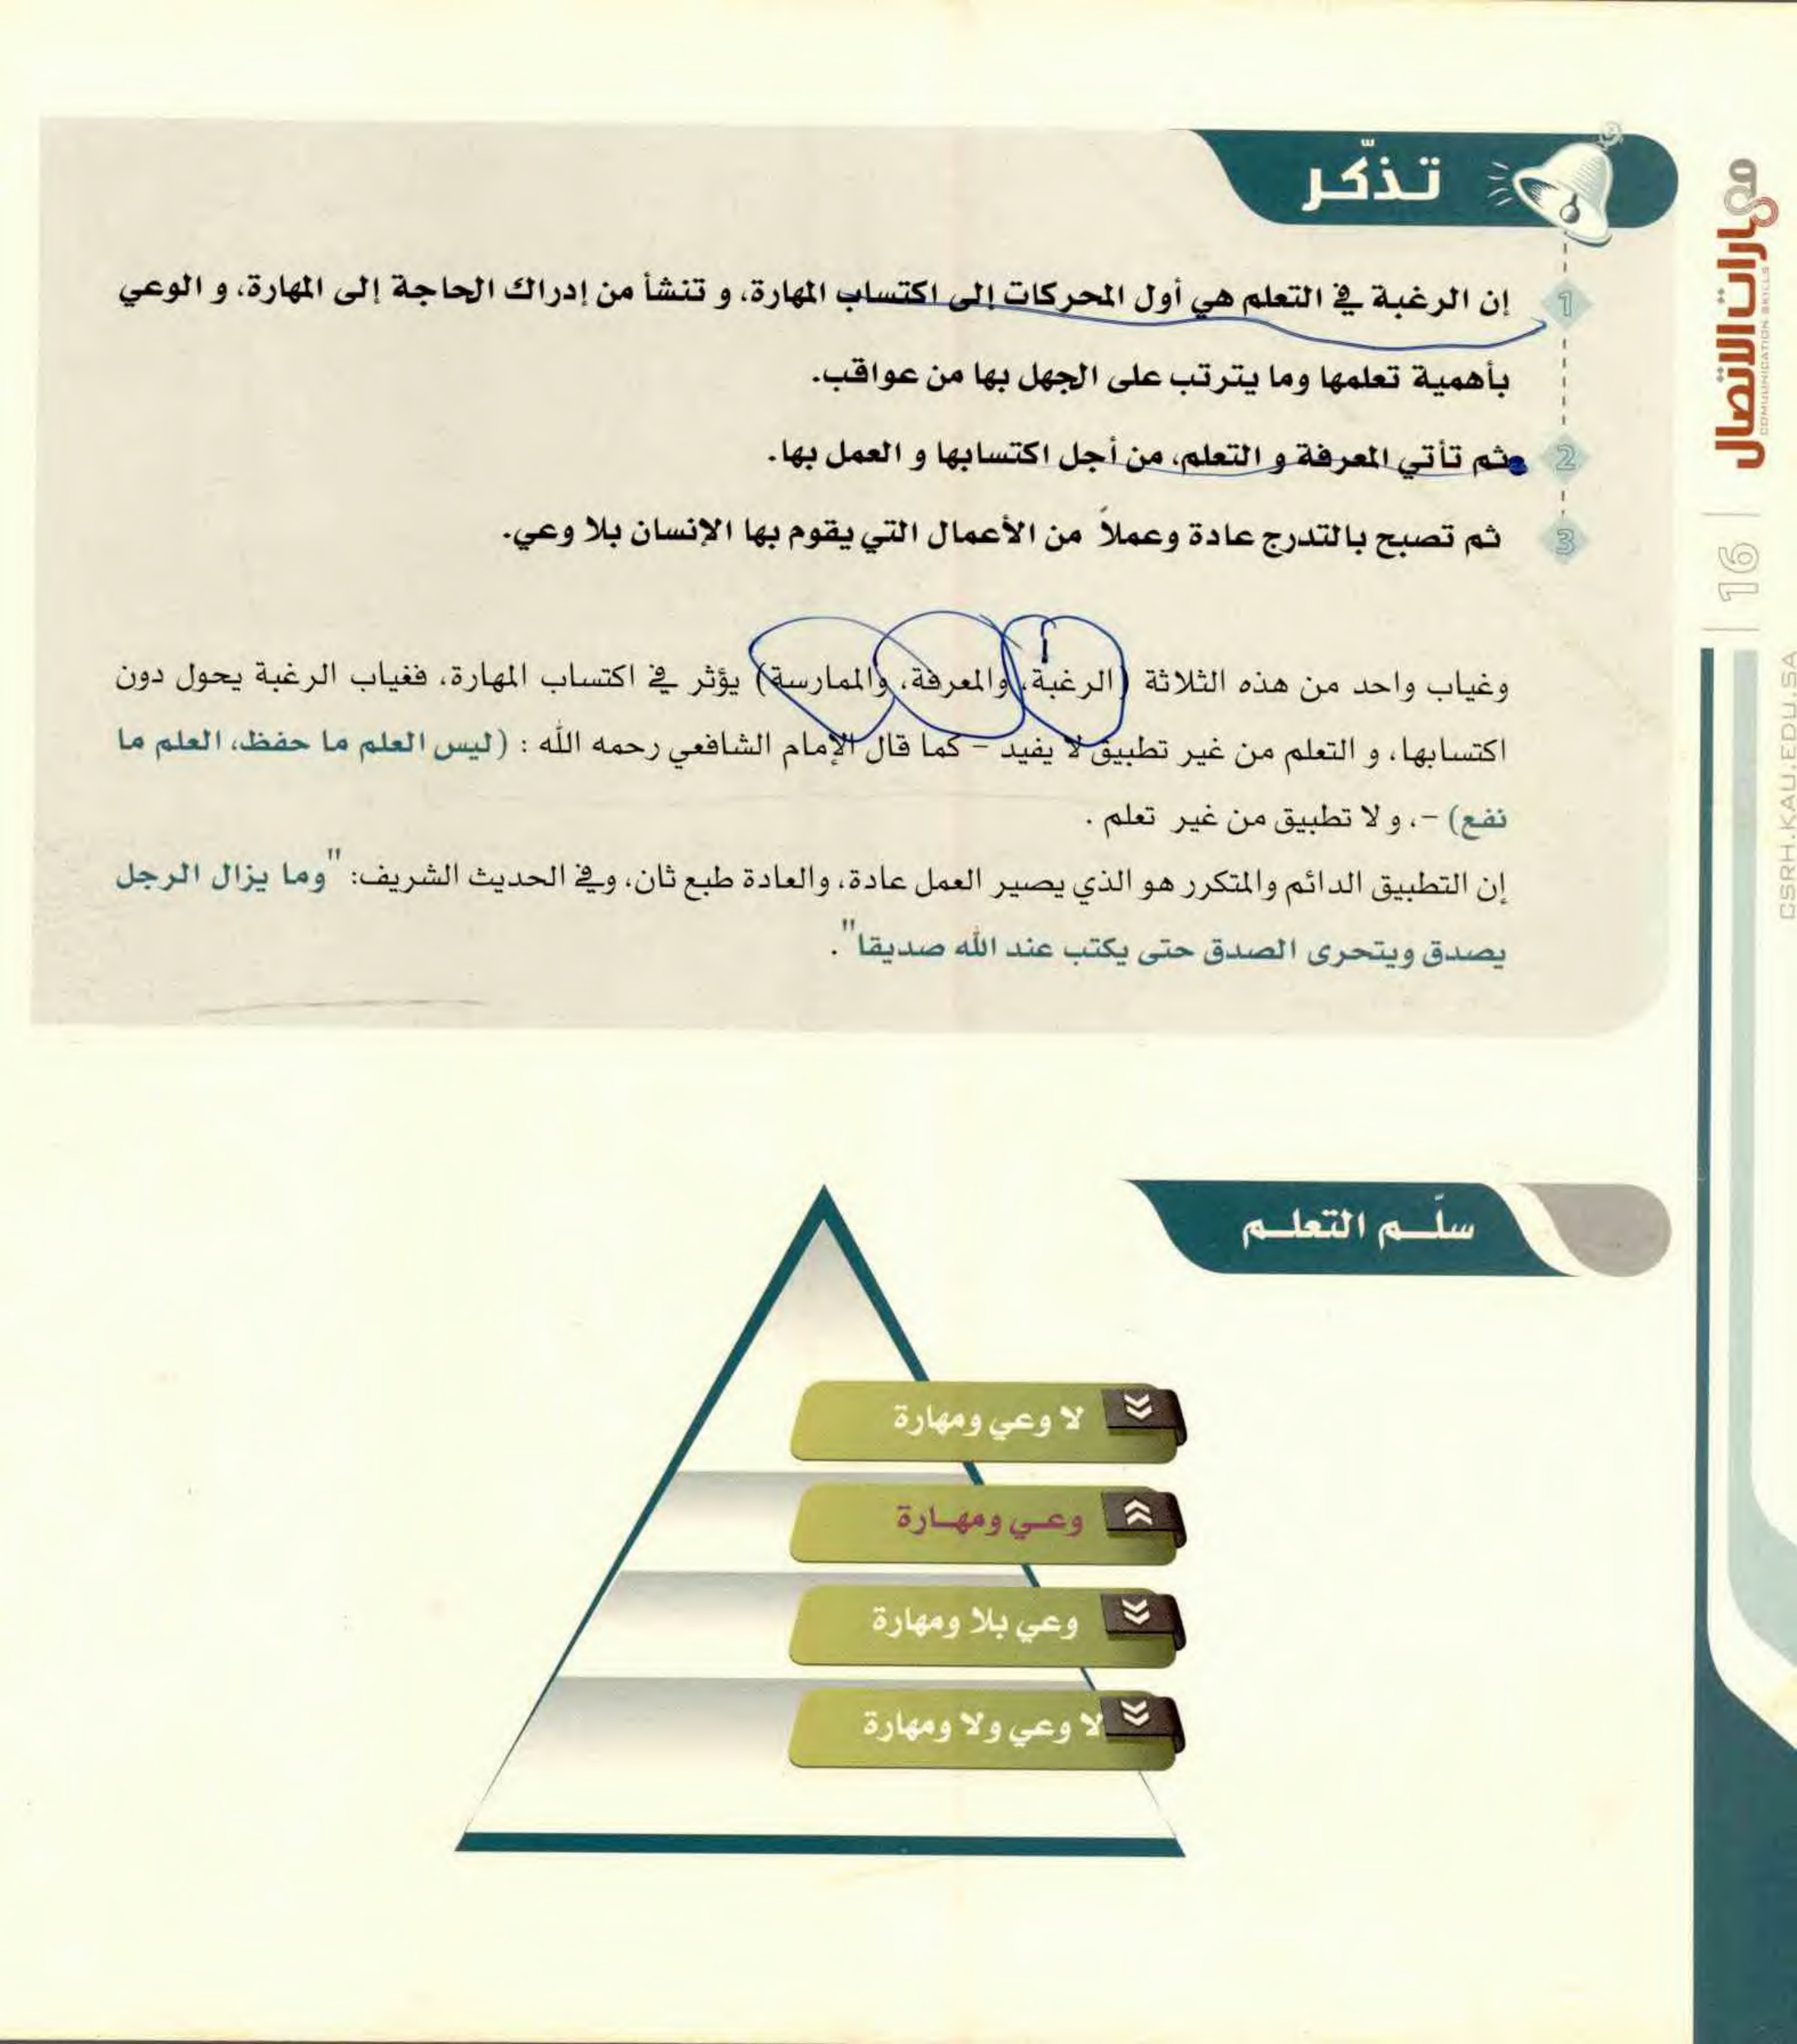 تذكّر
1 إن الرغبة في التعلم هي أول المحركات إلى اكتساب المهارة، و تنشأ من إدراك الحاجة إلى المهارة، و الوعي
بأهمية تعلمها وما يترتب على الجهل بها من عواقب.
2 ثم تأتي المعرفة و التعلم، من أجل اكتسابها و العمل بها.
3 ثم تصبح بالتدرج عادة وعملاً من الأعمال التي يقوم بها الإنسان بلا وعي.
وغياب واحد من هذه الثلاثة (الرغبة، والمعرفة، والممارسة) يؤثر في اكتساب المهارة، فغياب الرغبة يحول دون
اكتسابها، و التعلم من غير تطبيق لا يفيد – كما قال الإمام الشافعي رحمه الله : (ليس العلم ما حفظ، العلم ما
نفع) –، و لا تطبيق من غير تعلم .
إن التطبيق الدائم والمتكرر هو الذي يصير العمل عادة، والعادة طبع ثان، وفي الحديث الشريف: "وما يزال الرجل
يصدق ويتحرى الصدق حتى يكتب عند الله صديقا".
سلّم التعلم
لا وعي ومهارة
وعي ومهارة
وعي بلا ومهارة
لا وعي ولا ومهارة
مهارات الاتصال
COMUUNICATION SKILLS
16
CSRH.KAU.EDU.SA